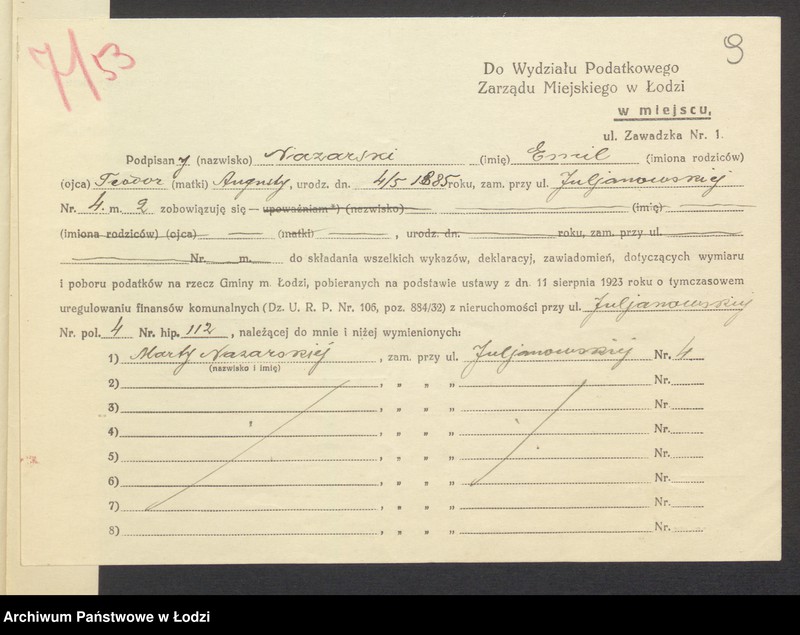 7/53
9
Do Wydziału Podatkowego
Zarządu Miejskiego w Łodzi
w miejscu,
ul. Zawadzka Nr. 1.
Podpisany (nazwisko) Nazarski (imię) Emil (imiona rodziców)
(ojca) Teodor (matki) Augusty, urodz. dn. 4/5 1885 roku, zam. przy ul. Juljanowskiej
Nr. 4. m. 2 zobowiązuję się — upoważniam*) (nazwisko) (imię)
(imiona rodziców) (ojca) (matki) , urodz. dn. roku, zam. przy ul.
Nr. m. do składania wszelkich wykazów, deklaracyj, zawiadomień, dotyczących wymiaru
i poboru podatków na rzecz Gminy m. Łodzi, pobieranych na podstawie ustawy z dn. 11 sierpnia 1923 roku o tymczasowem
uregulowaniu finansów komunalnych (Dz. U. R. P. Nr. 106, poz. 884/32) z nieruchomości przy ul. Juljanowskiej
Nr. pol. 4 Nr. hip. 112, należącej do mnie i niżej wymienionych:
1) Marty Nazarskiej, zam. przy ul. Juljanowskiej Nr. 4
(nazwisko i imię)
2) , „ „ „ Nr.
3) , „ „ „ Nr.
4) , „ „ „ Nr.
5) , „ „ „ Nr.
6) , „ „ „ Nr.
7) , „ „ „ Nr.
8) , „ „ „ Nr.
Archiwum Państwowe w Łodzi